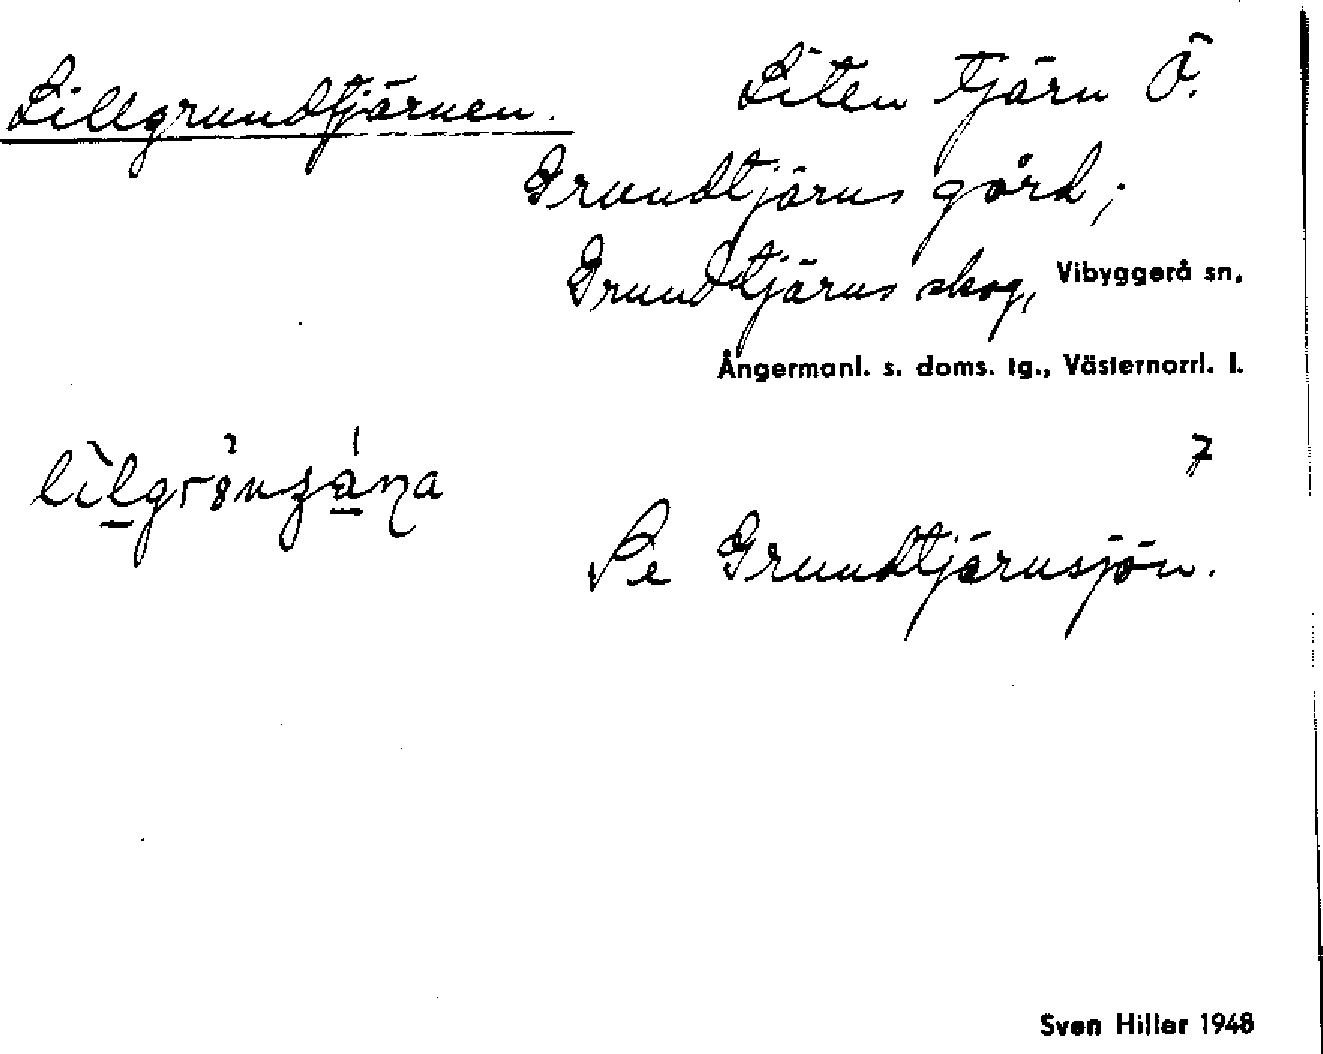 Lillgrundtjärnen.
Liten tjärn Ö.
Grundtjärns gård;
Grundtjärns skog, Vibyggerå sn.
Ångermanl. s. doms. tg., Västernorrl. l.
7
Se Grundtjärnsjön.
Sven Hiller 1948